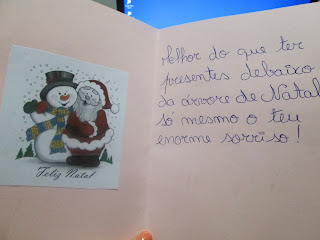 Feliz Natal
Melhor do que ter
presentes debaixo
da árvore de Natal
só mesmo o teu
enorme sorriso!